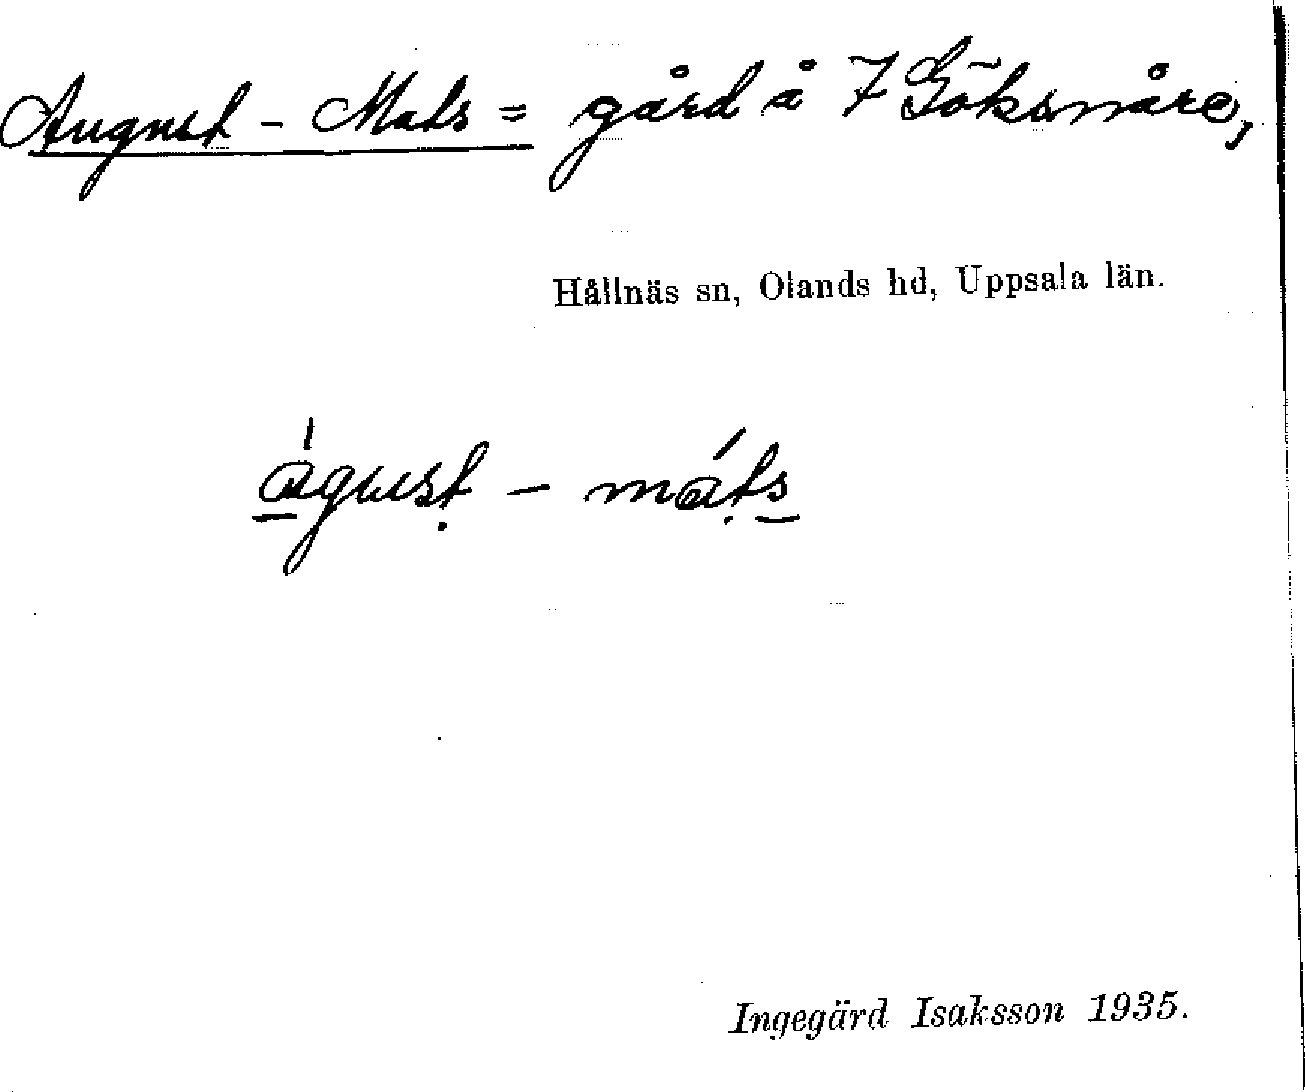 August - Mats = gård å 7 Göksnåre,
Hållnäs sn, Olands hd, Uppsala län.
águst - máts
Ingegärd Isaksson 1935.